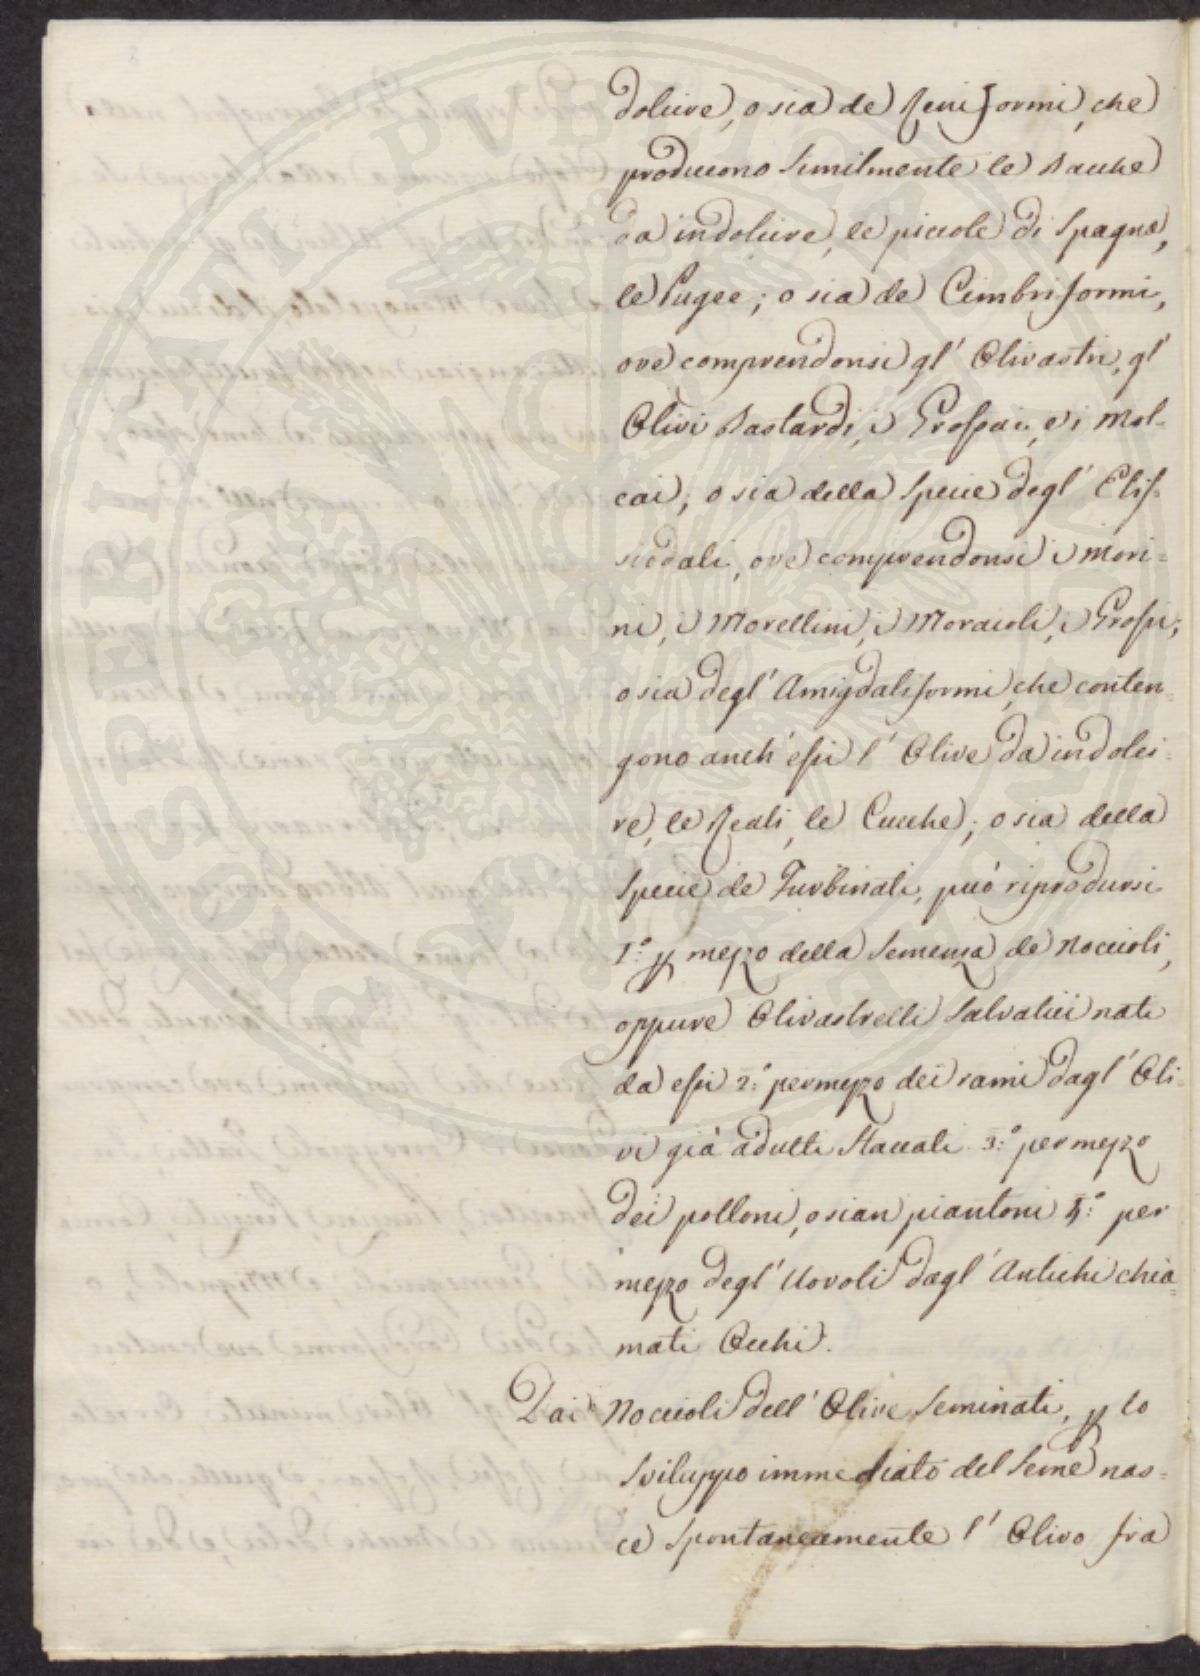 dolcire, o sia de Reniformi, che
producono similmente le Bacche
da indolcire, le piccole di Spagna,
le Pugee; o sia de Cimbriformi,
ove comprendonsi gl' Olivastri, gl'
Olivi Bastardi, i Grossai, e i Mol-
cai; o sia della Specie degl' Elis-
siodali, ove comprendonsi i Mori-
ni, i Morellini, i Moraioli, i Grossi;
o sia degl' Amigdaliformi, che conten-
gono anch' essi l' Olive da indolci-
re, le Reali, le Cucche; o sia della
Specie de Turbinati, può riprodursi
1.° p mezzo della Semenza de Noccioli,
oppure Olivastrelli Salvatici nati
da essi 2.° per mezzo dei rami dagl' Oli-
vi già adulti Staccati 3.° per mezzo
dei polloni, o sian piantoni 4.° per
mezzo degl' Uovoli dagl' Antichi chia-
mati Occhi.
Dai Noccioli dell' Olive Seminati, p lo
Sviluppo immediato del Seme nas-
ce Spontaneamente l' Olivo fra
PROSPERITATI PUBLICAE AUGENDAE